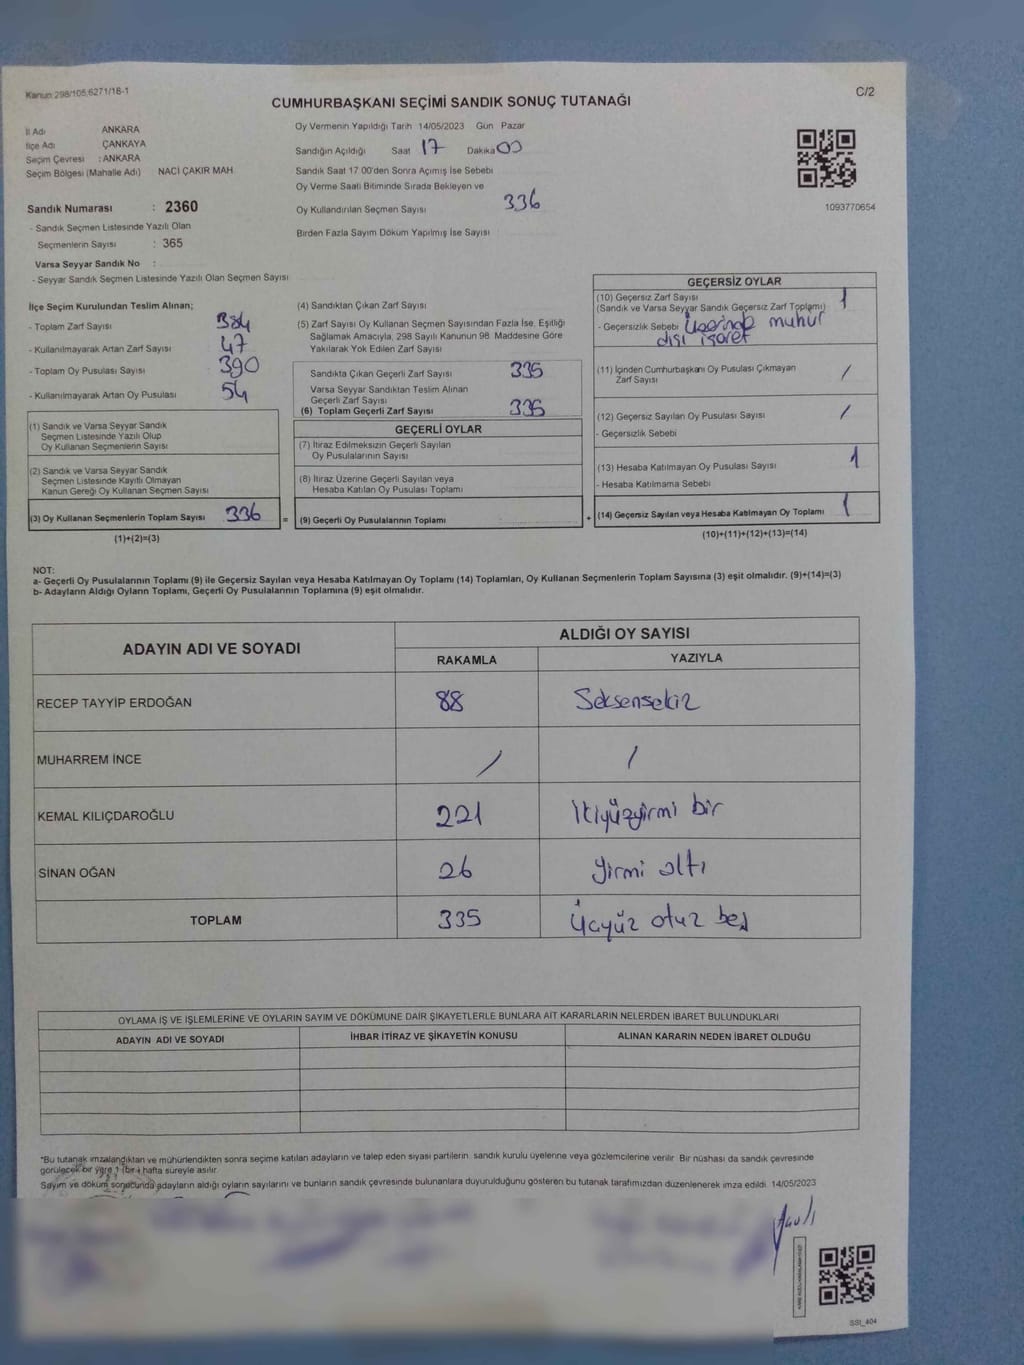 Kanun 298/105,6271/18-1
C/2
CUMHURBAŞKANI SEÇİMİ SANDIK SONUÇ TUTANAĞI
İl Adı ANKARA
İlçe Adı ÇANKAYA
Seçim Çevresi : ANKARA
Seçim Bölgesi (Mahalle Adı) NACİ ÇAKIR MAH.
Sandık Numarası : 2360
- Sandık Seçmen Listesinde Yazılı Olan
Seçmenlerin Sayısı : 365
Varsa Seyyar Sandık No :
- Seyyar Sandık Seçmen Listesinde Yazılı Olan Seçmen Sayısı
Oy Vermenin Yapıldığı Tarih 14/05/2023 Gün Pazar
Sandığın Açıldığı Saat 17 Dakika 00
Sandık Saat 17.00'den Sonra Açılmış İse Sebebi
Oy Verme Saati Bitiminde Sırada Bekleyen ve
Oy Kullandırılan Seçmen Sayısı 336
Birden Fazla Sayım Döküm Yapılmış İse Sayısı
1093770654
İlçe Seçim Kurulundan Teslim Alınan;
- Toplam Zarf Sayısı 384
- Kullanılmayarak Artan Zarf Sayısı 47
- Toplam Oy Pusulası Sayısı 390
- Kullanılmayarak Artan Oy Pusulası 54
(1) Sandık ve Varsa Seyyar Sandık
Seçmen Listesinde Yazılı Olup
Oy Kullanan Seçmenlerin Sayısı
(2) Sandık ve Varsa Seyyar Sandık
Seçmen Listesinde Kayıtlı Olmayan
Kanun Gereği Oy Kullanan Seçmen Sayısı
(3) Oy Kullanan Seçmenlerin Toplam Sayısı 336
(1)+(2)=(3)
=
(4) Sandıktan Çıkan Zarf Sayısı
(5) Zarf Sayısı Oy Kullanan Seçmen Sayısından Fazla İse, Eşitliği
Sağlamak Amacıyla, 298 Sayılı Kanunun 98. Maddesine Göre
Yakılarak Yok Edilen Zarf Sayısı
Sandıkta Çıkan Geçerli Zarf Sayısı 335
Varsa Seyyar Sandıktan Teslim Alınan
Geçerli Zarf Sayısı
(6) Toplam Geçerli Zarf Sayısı 335
GEÇERLİ OYLAR
(7) İtiraz Edilmeksizin Geçerli Sayılan
Oy Pusulalarının Sayısı
(8) İtiraz Üzerine Geçerli Sayılan veya
Hesaba Katılan Oy Pusulası Toplamı
(9) Geçerli Oy Pusulalarının Toplamı
+
GEÇERSİZ OYLAR
(10) Geçersiz Zarf Sayısı 1
(Sandık ve Varsa Seyyar Sandık Geçersiz Zarf Toplamı)
- Geçersizlik Sebebi Üzerinde mühür
dışı işaret
(11) İçinden Cumhurbaşkanı Oy Pusulası Çıkmayan
Zarf Sayısı /
(12) Geçersiz Sayılan Oy Pusulası Sayısı /
- Geçersizlik Sebebi
(13) Hesaba Katılmayan Oy Pusulası Sayısı 1
- Hesaba Katılmama Sebebi
(14) Geçersiz Sayılan veya Hesaba Katılmayan Oy Toplamı 1
(10)+(11)+(12)+(13)=(14)
NOT:
a- Geçerli Oy Pusulalarının Toplamı (9) ile Geçersiz Sayılan veya Hesaba Katılmayan Oy Toplamı (14) Toplamları, Oy Kullanan Seçmenlerin Toplam Sayısına (3) eşit olmalıdır. (9)+(14)=(3)
b- Adayların Aldığı Oyların Toplamı, Geçerli Oy Pusulalarının Toplamına (9) eşit olmalıdır.
ADAYIN ADI VE SOYADI
ALDIĞI OY SAYISI
RAKAMLA YAZIYLA
RECEP TAYYİP ERDOĞAN 88 Seksensekiz
MUHARREM İNCE / /
KEMAL KILIÇDAROĞLU 221 İkiyüzyirmi bir
SİNAN OĞAN 26 Yirmi altı
TOPLAM 335 Üçyüz otuz beş
OYLAMA İŞ VE İŞLEMLERİNE VE OYLARIN SAYIM VE DÖKÜMÜNE DAİR ŞİKAYETLERLE BUNLARA AİT KARARLARIN NELERDEN İBARET BULUNDUKLARI
ADAYIN ADI VE SOYADI İHBAR İTİRAZ VE ŞİKAYETİN KONUSU ALINAN KARARIN NEDEN İBARET OLDUĞU
*Bu tutanak imzalandıktan ve mühürlendikten sonra seçime katılan adayların ve talep eden siyasi partilerin sandık kurulu üyelerine veya gözlemcilerine verilir. Bir nüshası da sandık çevresinde
görülecek bir yere 1 (bir) hafta süreyle asılır.
Sayım ve döküm sonucunda adayların aldığı oyların sayılarını ve bunların sandık çevresinde bulunanlara duyurulduğunu gösteren bu tutanak tarafımızdan düzenlenerek imza edildi. 14/05/2023
SSI_404